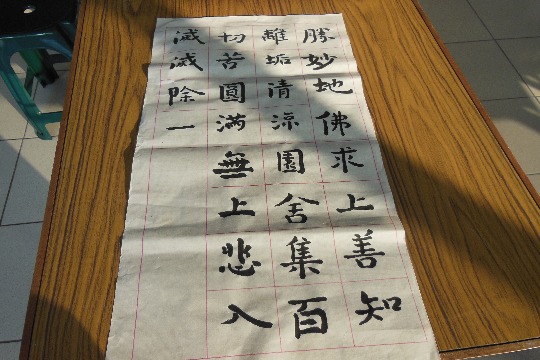 勝妙地佛求上善知
離垢清涼園舍集百
切苦圓滿無上悲入
減滅除一